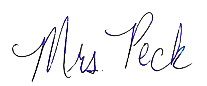 Mrs. Peck